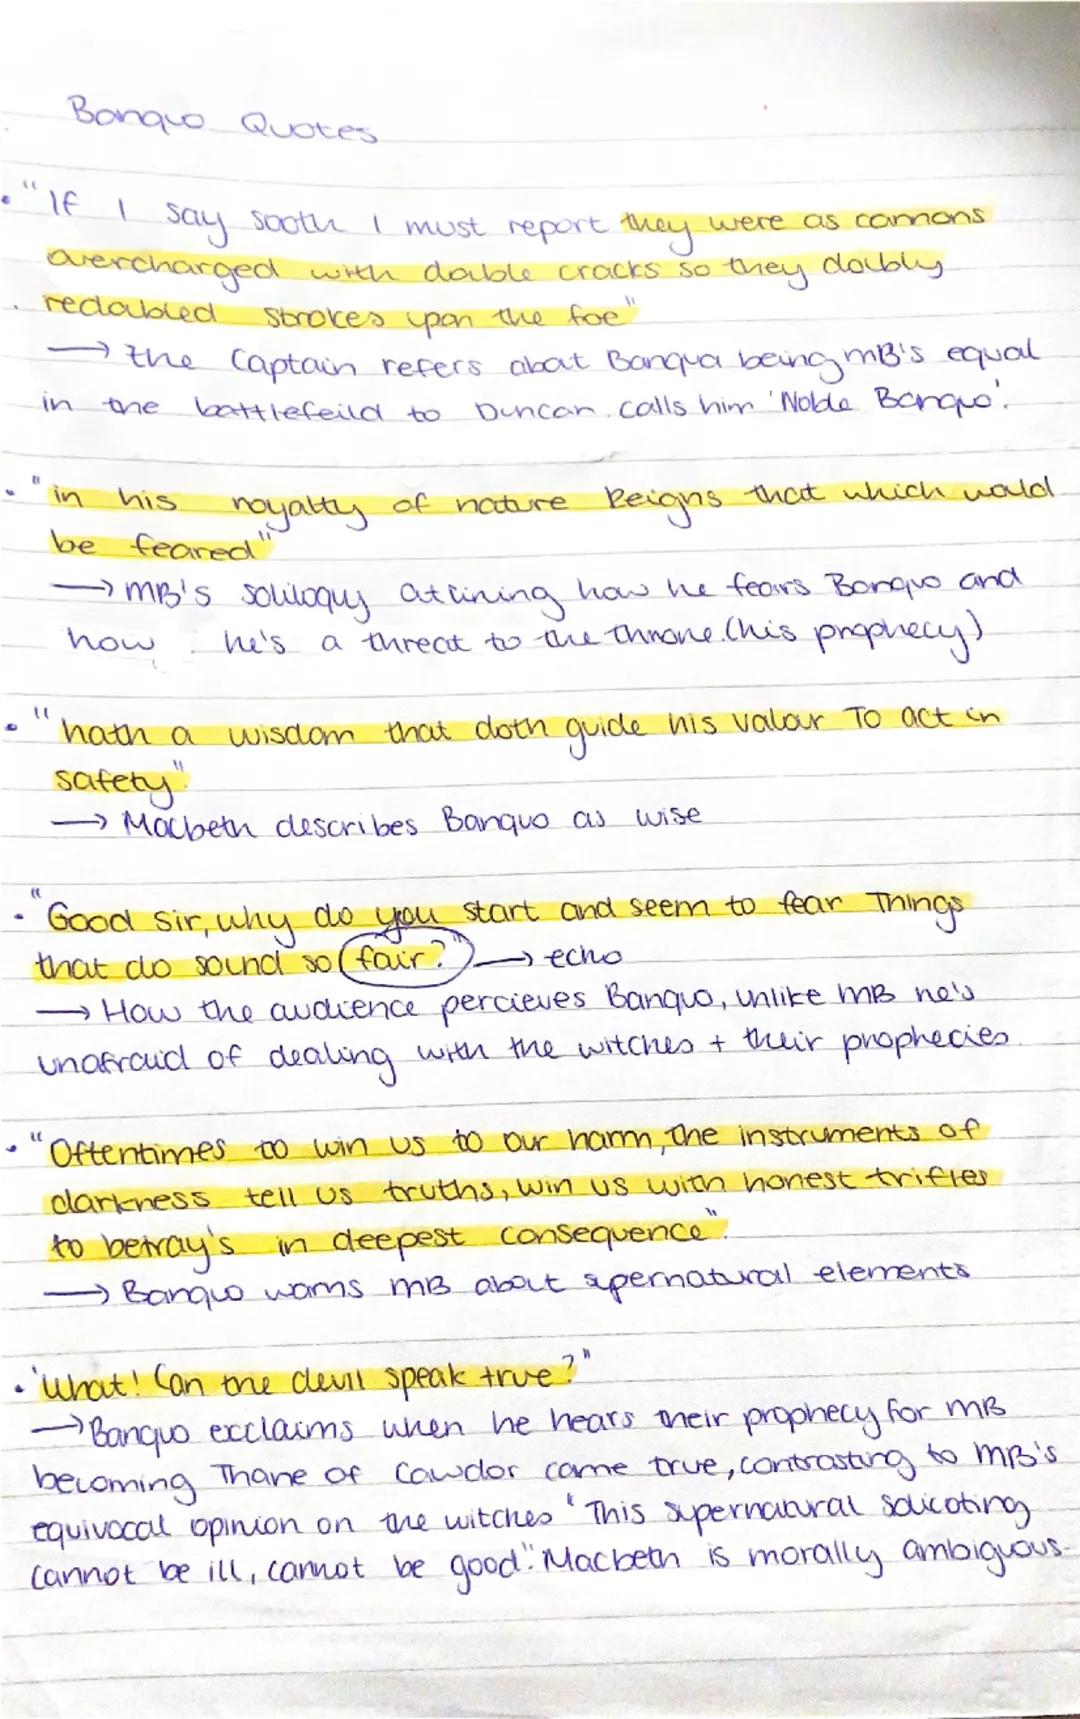 Banquo Quotes
• "If I say sooth I must report they were as cannons
overcharged with double cracks so they doubly
redoubled strokes upon the foe"
→ the Captain refers about Banquo being MB's equal
in the battlefeild to Duncan. calls him 'Noble Banquo'.
• "in his royalty of nature Reigns that which would
be feared"
→ MB's soliloquy outlining how he fears Banquo and
how he's a threat to the throne. (his prophecy)
• "hath a wisdom that doth guide his valour To act in
safety"
→ Macbeth describes Banquo as wise
• "Good sir, why do you start and seem to fear Things
that do sound so fair?" → echo
→ How the audience percieves Banquo, unlike MB he's
unafraid of dealing with the witches + their prophecies.
• "Oftentimes to win us to our harm, the instruments of
darkness tell us truths, win us with honest trifles
to betray's in deepest consequence".
→ Banquo warns MB about supernatural elements
• 'What! Can the devil speak true?"
→ Banquo exclaims when he hears their prophecy for MB
becoming Thane of Cawdor came true, contrasting to MB's
equivocal opinion on the witches "This supernatural solicoting
cannot be ill, cannot be good". Macbeth is morally ambiguous.